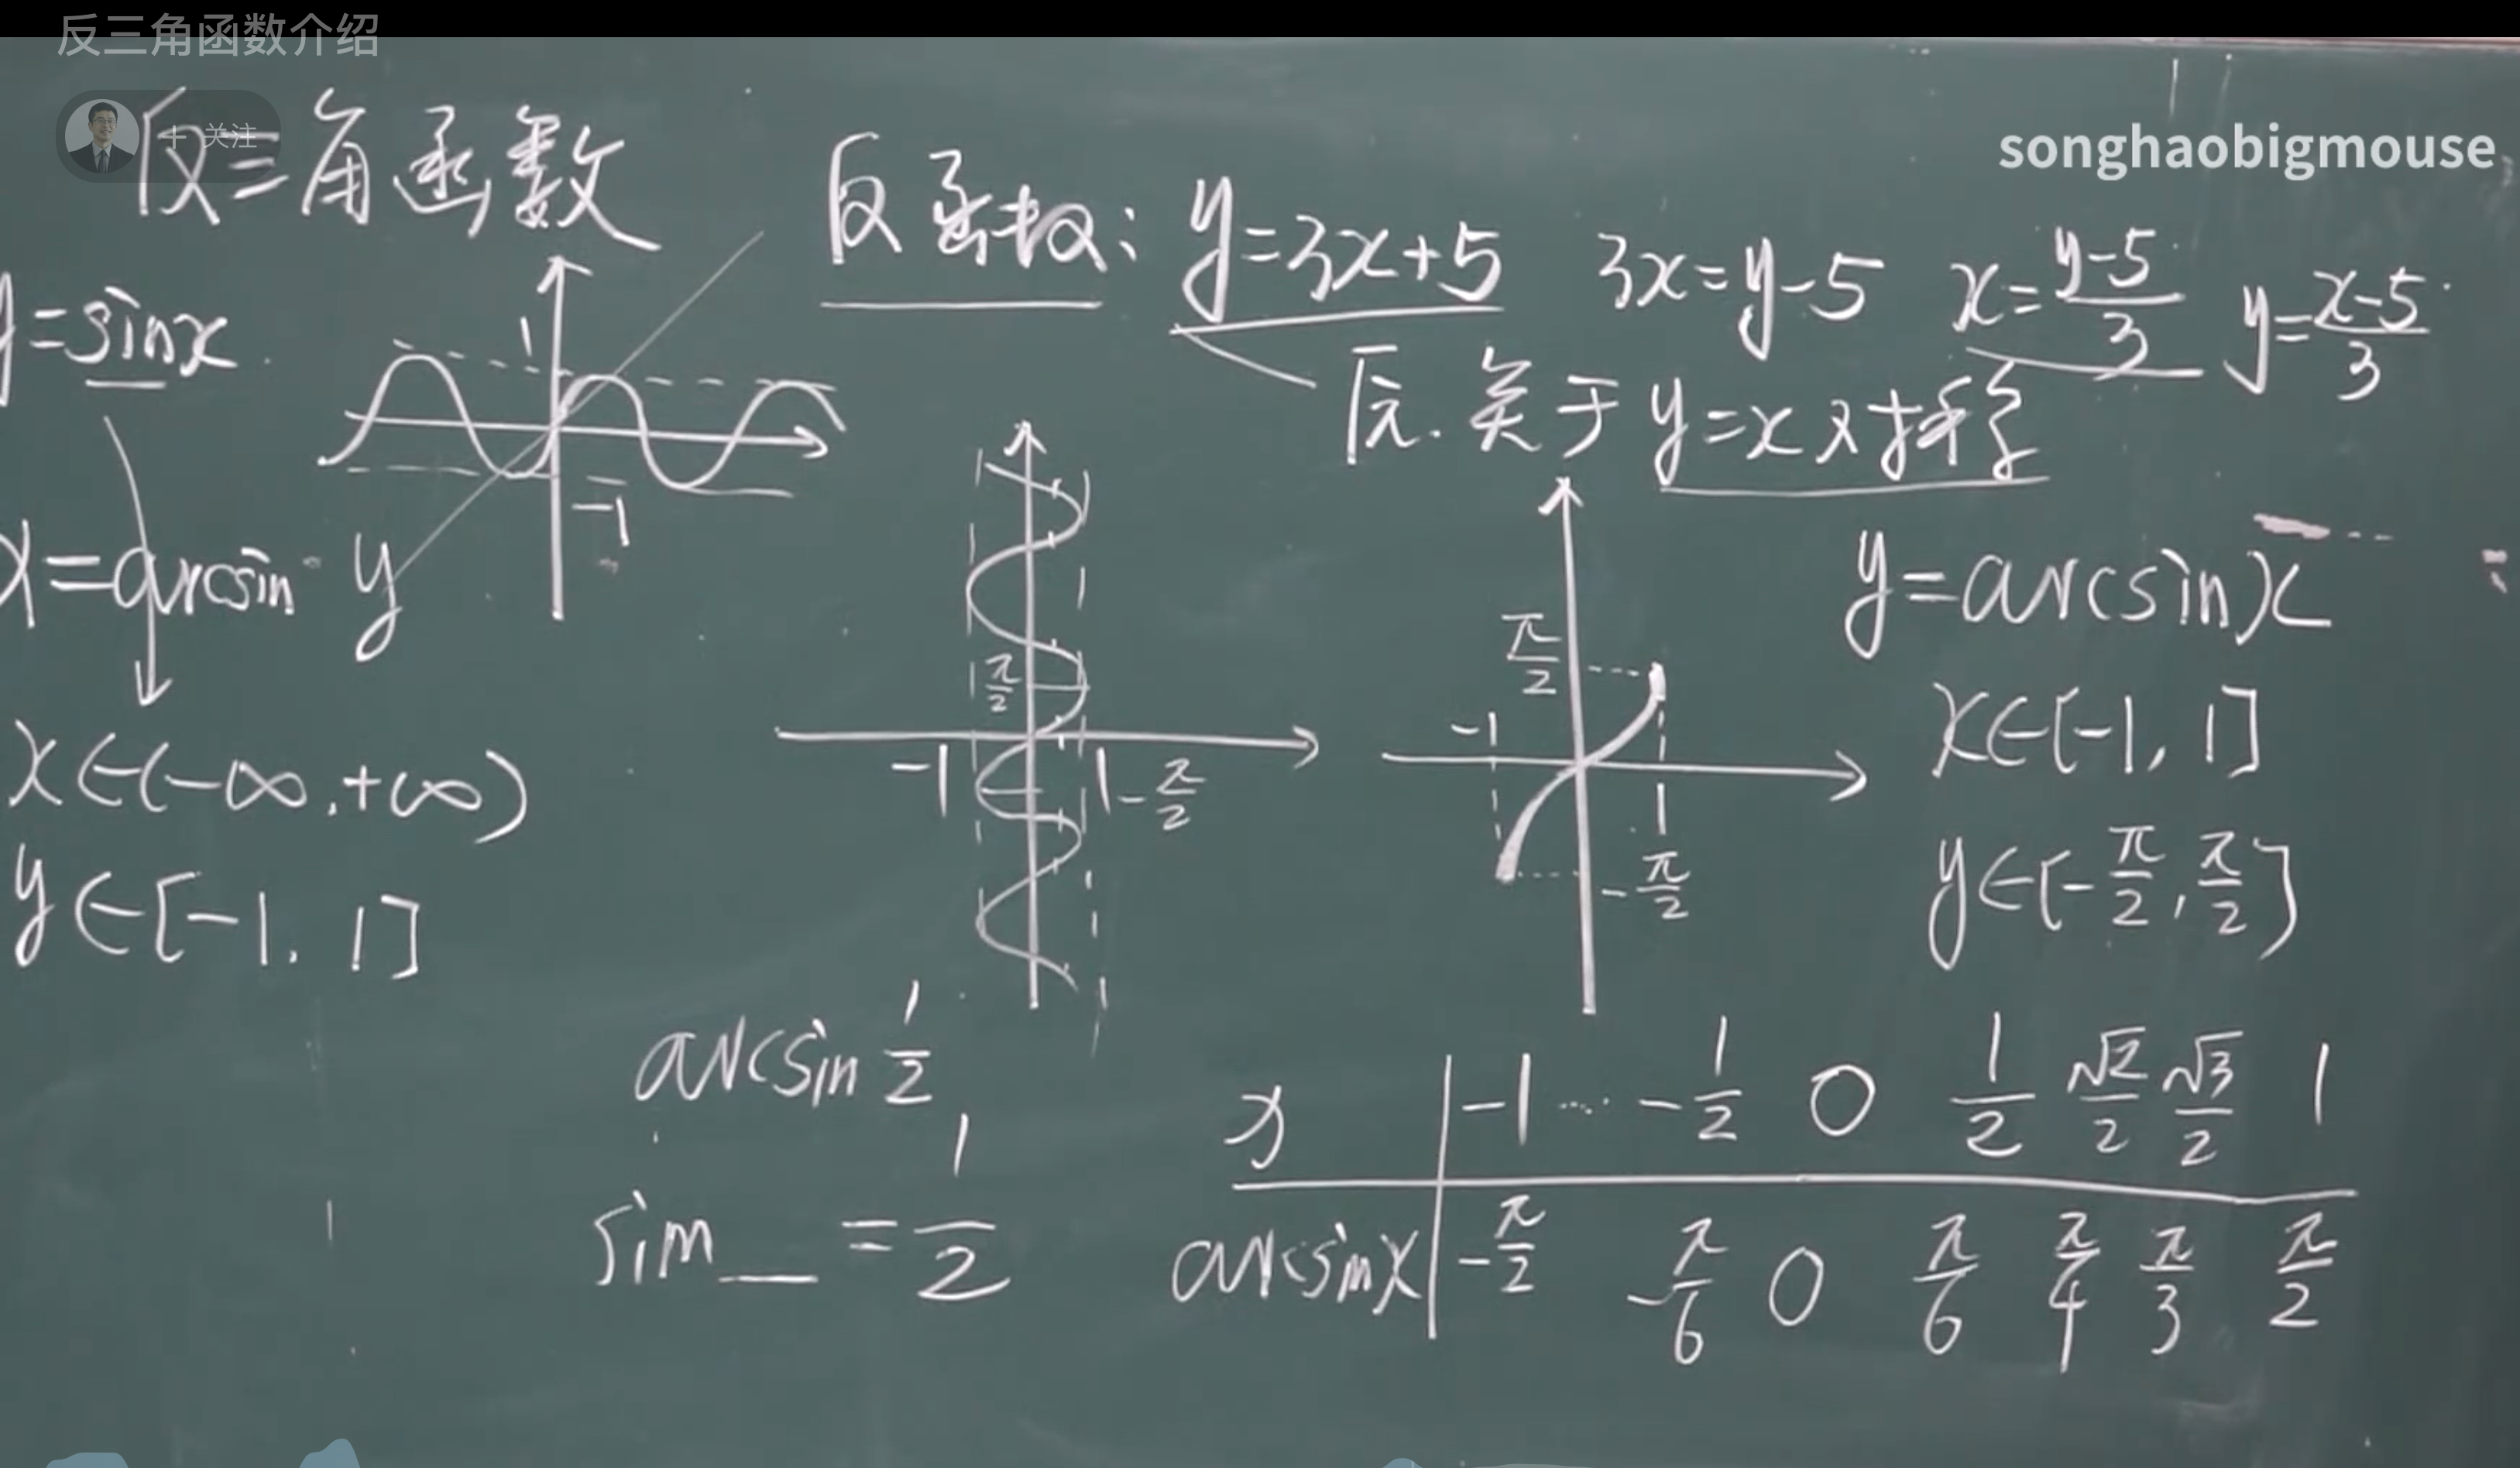 反三角函数介绍
+ 关注
songhaobigmouse
反三角函数
反函数: y=3x+5 3x=y-5 x=\frac{y-5}{3} y=\frac{x-5}{3}
y=sinx
1
-1
反. 关于y=x对称
x=arcsin y
x∈(-∞,+∞)
y∈[-1, 1]
1
\frac{π}{2}
-1 1 -\frac{π}{2}
\frac{π}{2}
-1
1
-\frac{π}{2}
y=arcsinx
x∈[-1, 1]
y∈[-\frac{π}{2}, \frac{π}{2}]
arcsin \frac{1}{2}
sin__=\frac{1}{2}
x | -1 ... -\frac{1}{2} 0 \frac{1}{2} \frac{√2}{2} \frac{√3}{2} 1
arcsinx | -\frac{π}{2} -\frac{π}{6} 0 \frac{π}{6} \frac{π}{4} \frac{π}{3} \frac{π}{2}